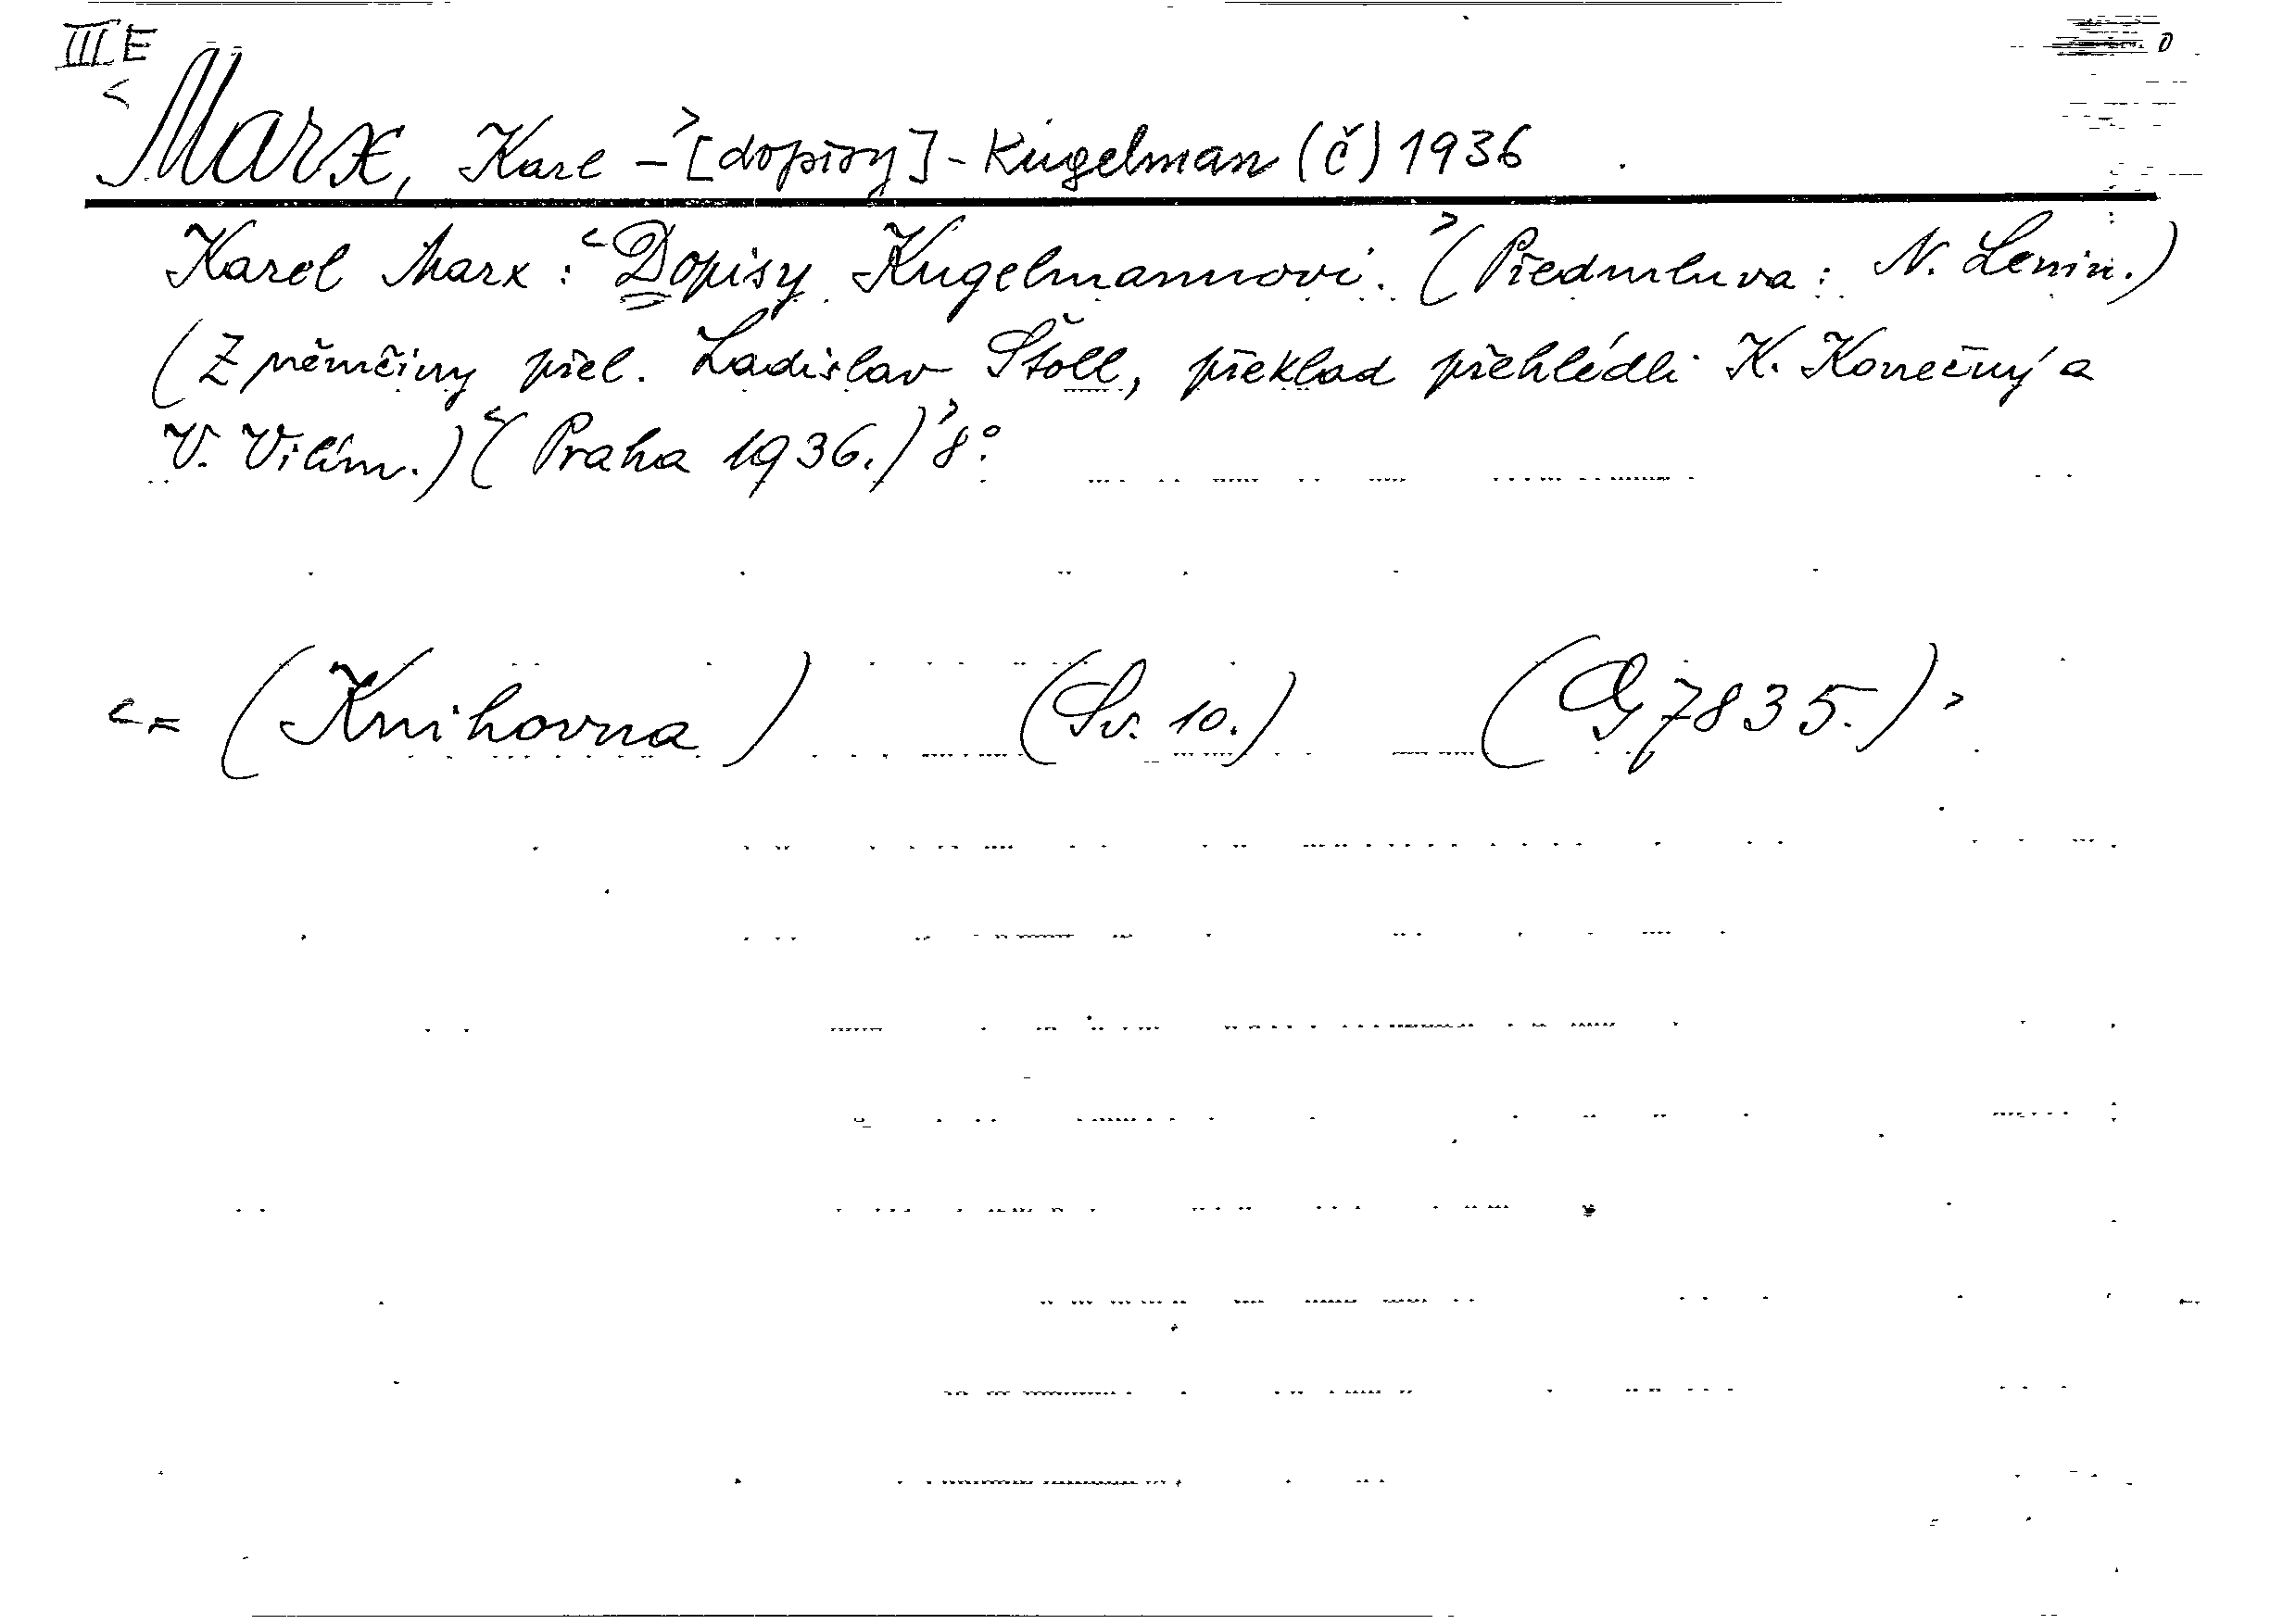 III E
<Marx, Karl -> [dopisy] - Kugelman (č) 1936
Karel Marx: <Dopisy Kugelmannovi.> (Předmluva: N. Lenin.)
(Z němčiny přel. Ladislav Štoll, překlad přehlédli K. Konečný a
V. Vilím.) <(Praha 1936.)> 8°.
<= (Knihovna) (Sv. 10.) (Gf 7835.)>